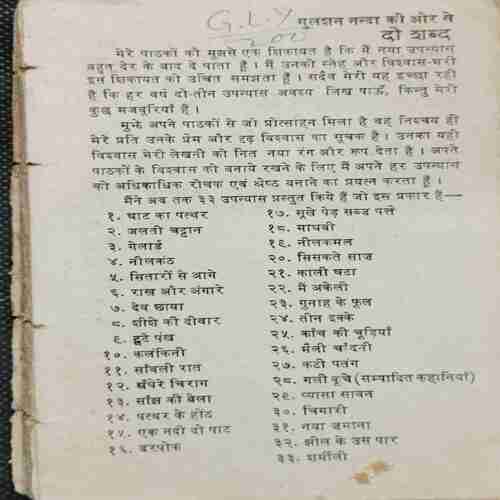 G.L.Y
गुलशन नन्दा की ओर से
दो शब्द
मेरे पाठकों को मुझसे एक शिकायत है कि मैं नया उपन्यास
बहुत देर के बाद दे पाता हूँ । मैं उनकी स्नेह और विश्वास-भरी
इस शिकायत को उचित समझता हूँ । सदैव मेरी यह इच्छा रही
है कि हर वर्ष दो-तीन उपन्यास अवश्य लिख पाऊँ, किन्तु मेरी
कुछ मजबूरियाँ हैं ।
मुझे अपने पाठकों से जो प्रोत्साहन मिला है वह निश्चय ही
मेरे प्रति उनके प्रेम और दृढ़ विश्वास का सूचक है । उनका यही
विश्वास मेरी लेखनी को नित नया रंग और रूप देता है । अपने
पाठकों के विश्वास को बनाये रखने के लिए मैं अपने हर उपन्यास
को अधिकाधिक रोचक एवं श्रेष्ठ बनाने का प्रयत्न करता हूँ ।
मैंने अब तक ३३ उपन्यास प्रस्तुत किये हैं जो इस प्रकार हैं—
१. घाट का पत्थर
२. जलती चट्टान
३. गेलार्ड
४. नीलकंठ
५. सितारों से आगे
६. राख और अंगारे
७. देव छाया
८. शीशे की दीवार
९. टूटे पंख
१०. कलंकिनी
११. सांवली रात
१२. अंधेरे चिराग
१३. सांझ की बेला
१४. पत्थर के होंठ
१५. एक नदी दो पाट
१६. डरपोक
१७. सूखे पेड़ सब्ज पत्ते
१८. माधवी
१९. नीलकमल
२०. सिसकते साज
२१. काली घटा
२२. मैं अकेली
२३. गुनाह के फूल
२४. तीन इक्के
२५. कांच की चूड़ियाँ
२६. मैली चांदनी
२७. कटी पतंग
२८. गली कूचे (सम्पादित कहानियाँ)
२९. प्यासा सावन
३०. चिंगारी
३१. नया जमाना
३२. झील के उस पार
३३. शर्मीली